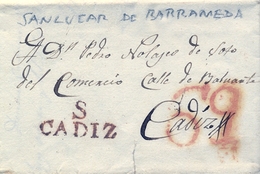 SANLUCAR DE BARRAMEDA
A Dn Pedro Nolasco de Soto
del Comercio Calle de Baluarte
S
CADIZ
Cadiz